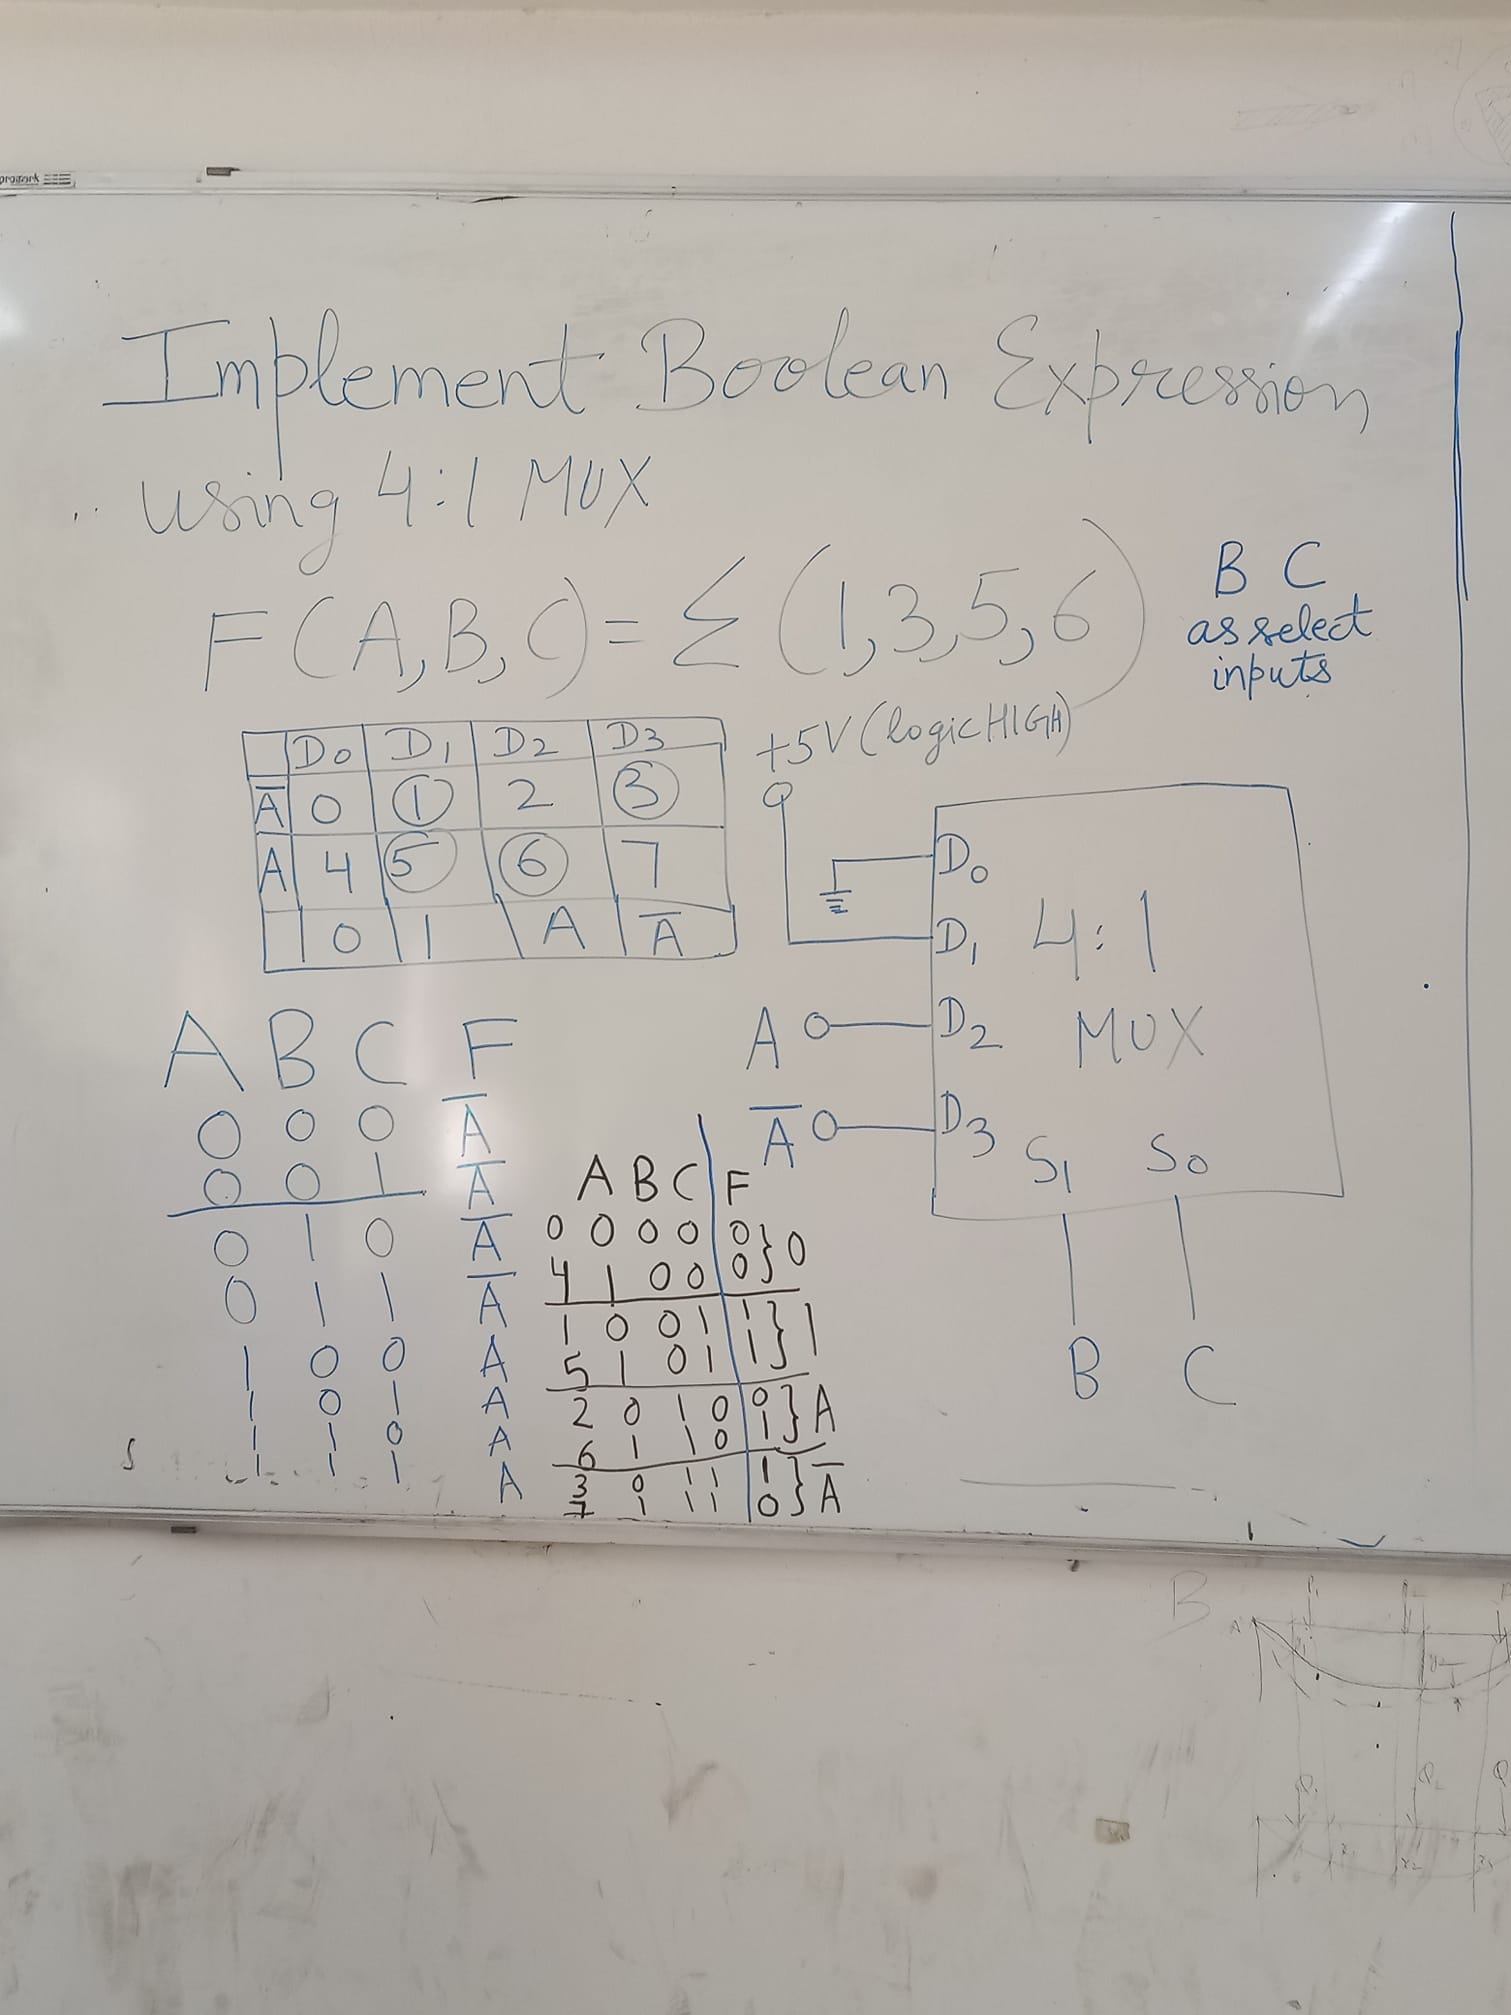 Implement Boolean Expression
using 4:1 MUX
F(A,B,C)=Σ(1,3,5,6)
B C
as select
inputs
D0 D1 D2 D3
Ā 0 1 2 3
A 4 5 6 7
0 1 A Ā
+5V (logic HIGH)
D0
D1 4:1
A D2 MUX
Ā D3
S1 S0
B C
A B C F
0 0 0 Ā
0 0 1 Ā
0 1 0 Ā
0 1 1 Ā
1 0 0 A
1 0 1 A
1 1 0 A
1 1 1 A
A B C F
0 0 0 0 0 } 0
4 1 0 0 0
1 0 0 1 1 } 1
5 1 0 1 1
2 0 1 0 0 } A
6 1 1 0 1
3 0 1 1 1 } Ā
7 1 1 1 0
B